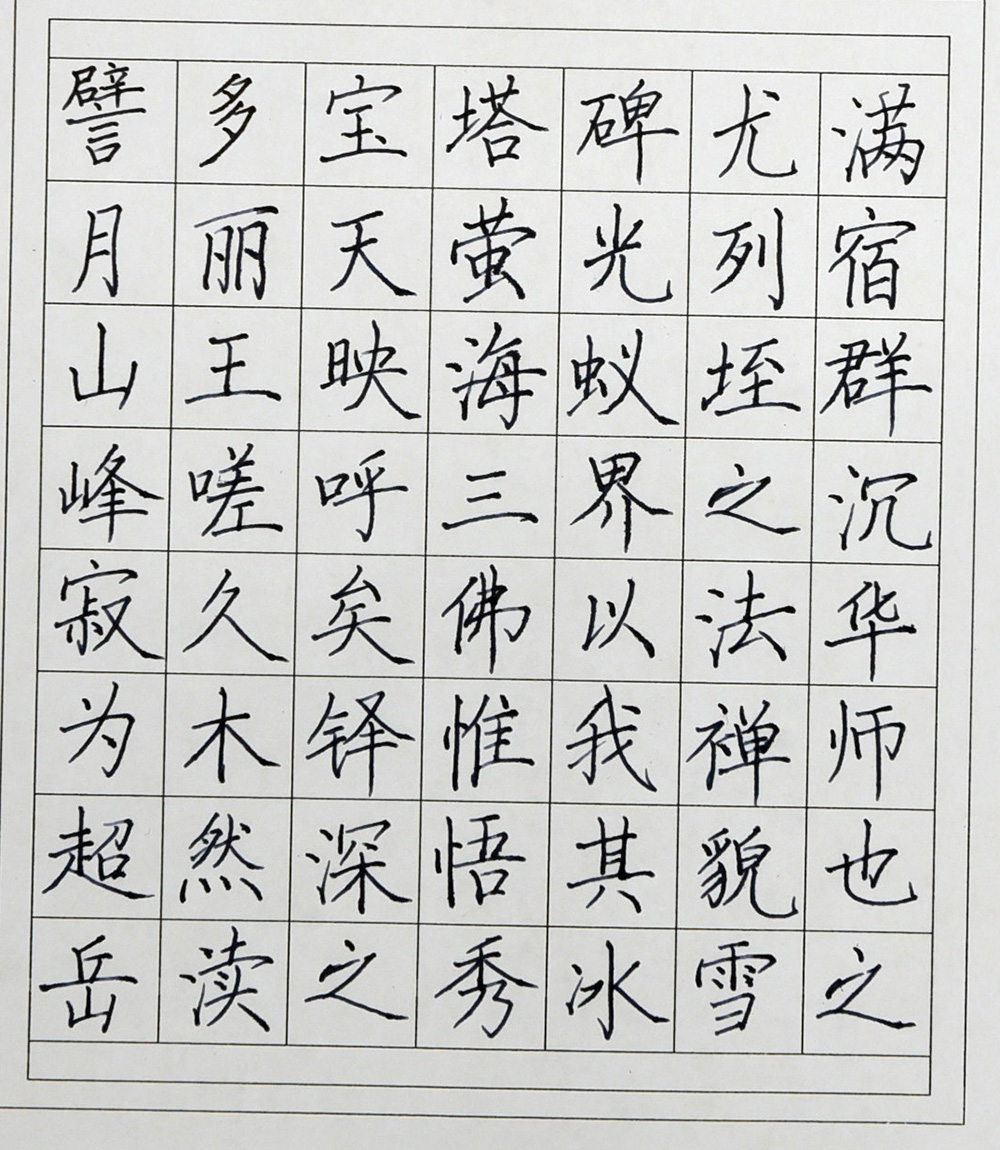 譬多宝塔碑尤满
月丽天萤光列宿
山王映海蚁垤群
峰嗟呼三界之沉
寂久矣佛以法华
为木铎惟我禅师
超然深悟其貌也
岳渎之秀冰雪之